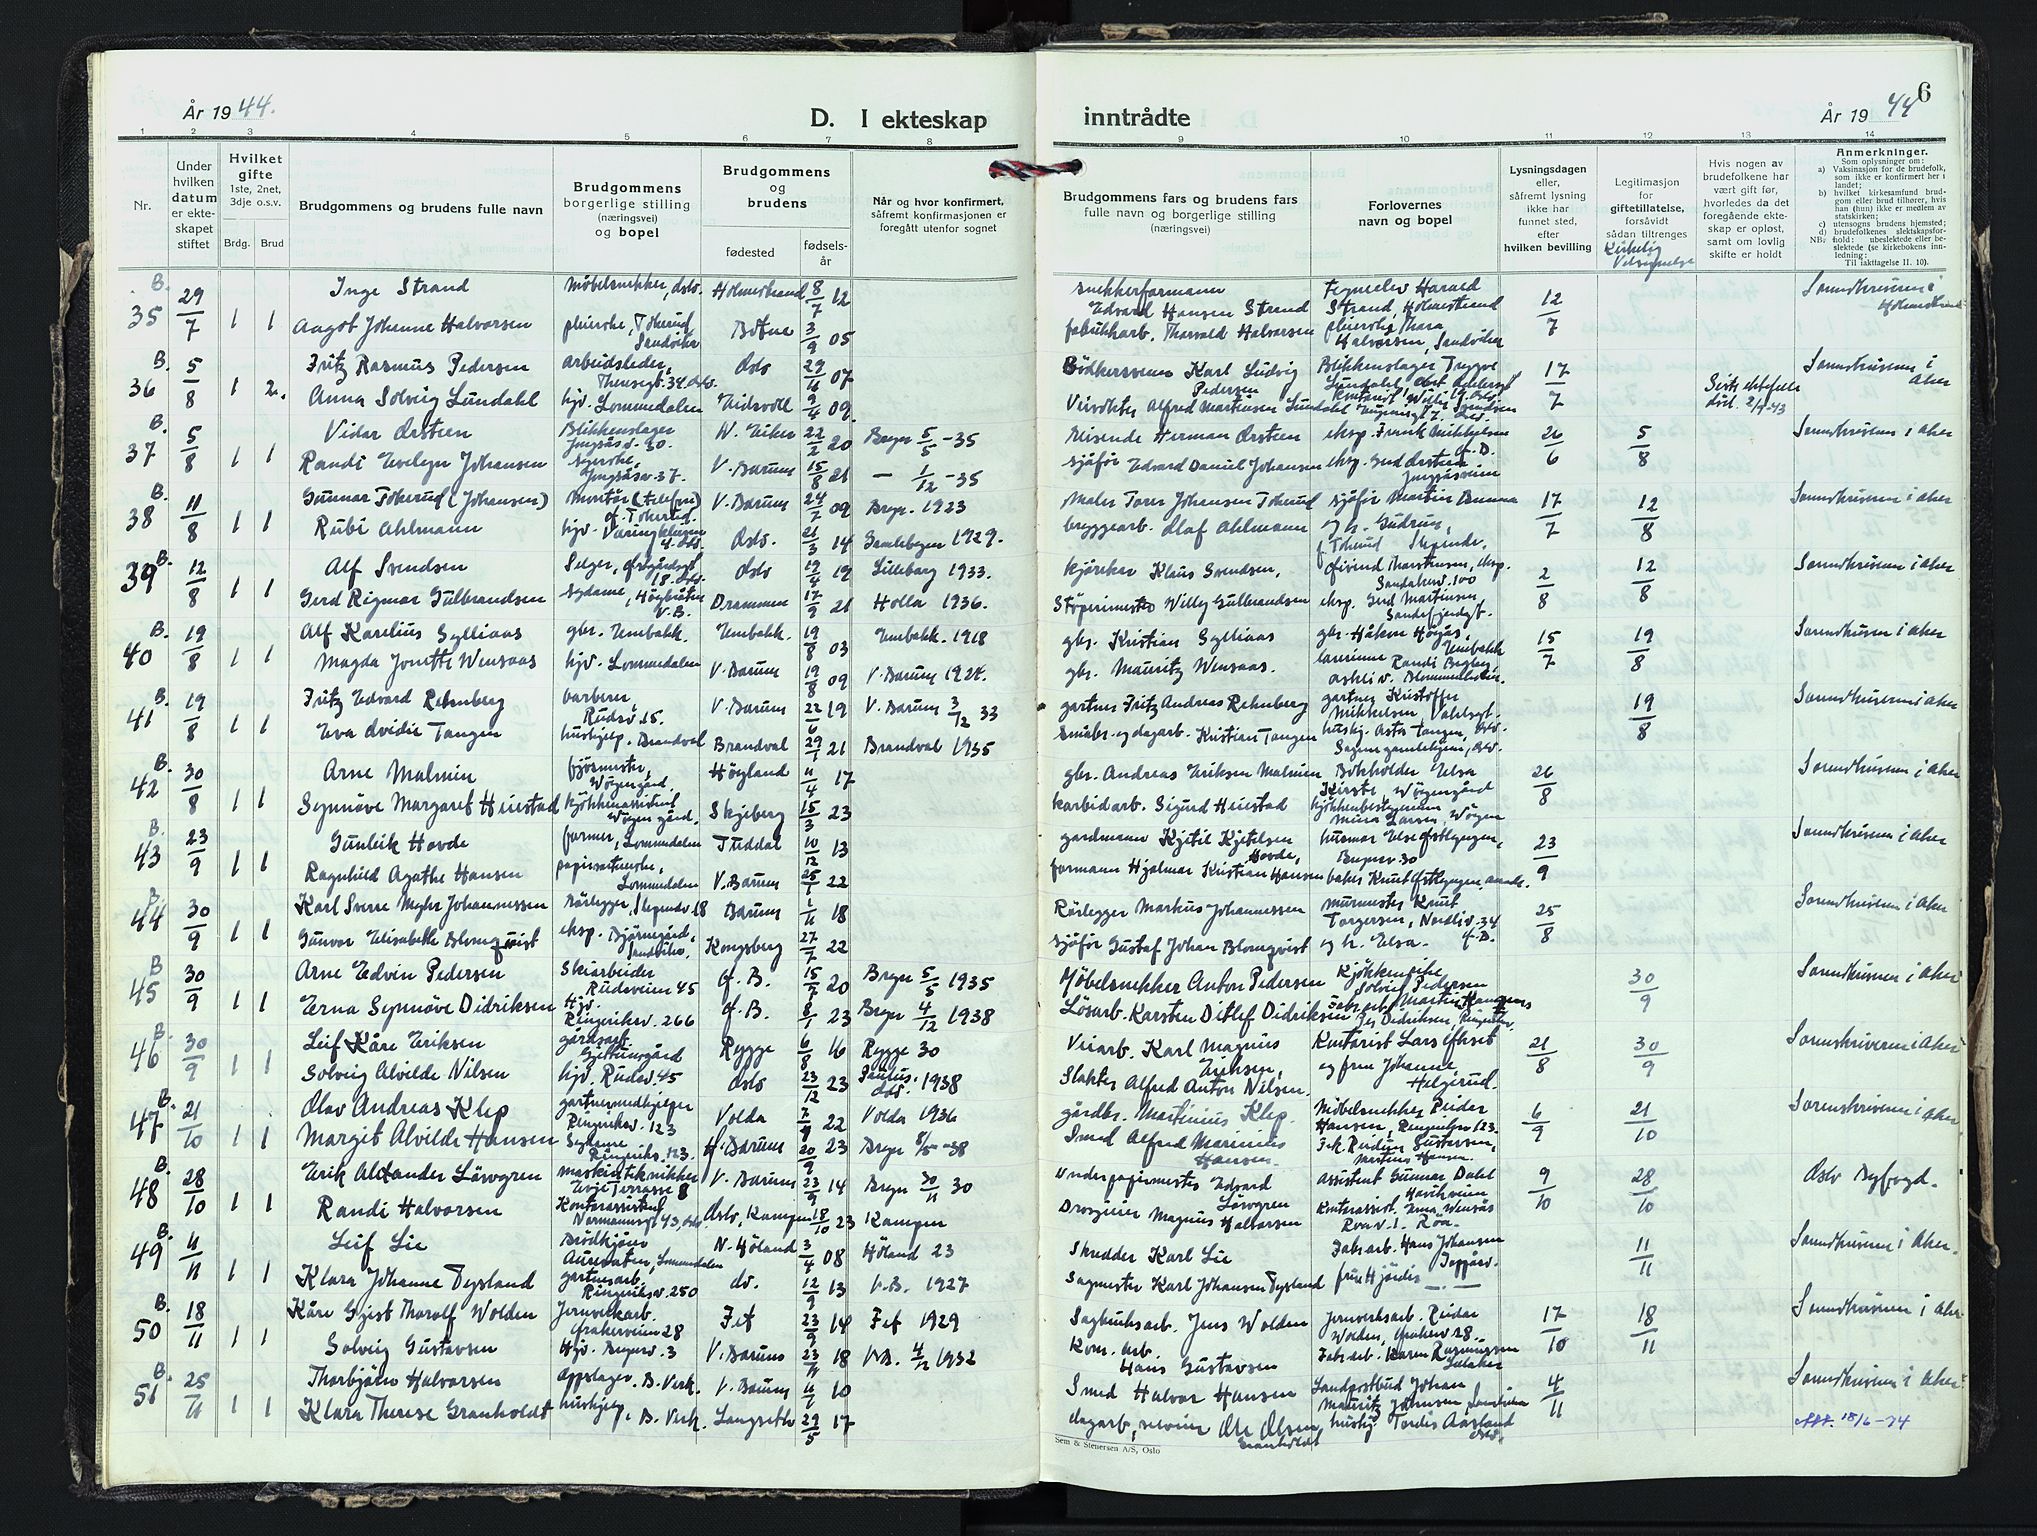 År 1944.
D. I ekteskap
1 2 3 4 5 6 7 8
Nr.
Under hvilken datum er ekteskapet stiftet
Hvilket gifte
1ste, 2net, 3dje o.s.v.
Brdg. Brud
Brudgommens og brudens fulle navn
Brudgommens borgerlige stilling (næringsvei) og bopel
Brudgommens og brudens
fødested
fødsels-år
Når og hvor konfirmert, såfremt konfirmasjonen er foregått utenfor sognet
B. 35 29/7 1 1
Inge Strand Møbelsnekker, Oslo. Holmestrand 8/7 12
Aagot Johanne Halvorsen pleierske, Tokerud Sandvika Botne 3/9 05
B. 36 5/8 1 2.
Fritz Rasmus Pedersen arbeidsleder, Oslo 29/11 07
Anna Solveig Lundahl hjv. Lommedalen Eidsvoll 9/4 09
B. 37 5/8 1 1
Vidar Ørsteen Blikkenslager N. Eiker 22/2 20 Bryn 5/5 -35
Randi Evelyn Johansen V. Bærum 15/8 21 — 1/12 -35
B. 38 11/8 1 1
Gunnar Tokerud (Johansen) Montør (telefon) V. Bærum 24/7 09 Bryn. 1923
Rubi Ahlmann hjv. Oslo. 21/3 14 Gamlebyen 1929.
B. 39 12/8 1 1
Alf Svendsen Selger, Oslo 19/4 19 Lilleborg 1933.
Gerd Rigmor Gulbrandsen sydame, V.B. Drammen 17/9 21 Holla 1936.
B. 40 19/8 1 1
Alf Karelius Sylliaas gbr. Enebakk. Enebakk. 19/8 03 Enebakk. 1918
Magda Jonette Wensaas hjv. Lommedalen V. Bærum 19/8 09 V. Bærum 1924.
B. 41 19/8 1 1
Fritz Edvard Rehnberg barberer, Rudsv. 15. V. Bærum 22/6 19 V. Bærum 3/12 33
Eva Ovidie Tangen hushjelp. Brandval Brandval 29/1 21 Brandval 1935
B. 42 30/8 1 1
Arne Malmin fjøsmester, Høyland 11/4 17
Synnøve Margaret Heiestad kjøkkenassistent Skjeberg 15/3 23
B. 43 23/9 1 1
Gunleik Hovde former, Lommedalen Tuddal 10/12 13
Ragnhild Agathe Hansen Lommedalen V. Bærum 25/1 22
B. 44 30/9 1 1
Karl Sverre Myhr Johannessen Rørlegger, Slependv. 18 Bærum 1/11 18
Gunvor Elisabeth Blomqvist eksp. Bjørnegård, Sandvika. Kongsberg 27/7 22
B 45 30/9 1 1
Arne Edvin Pedersen Skiarbeider Rudsveien 45 Ø. B. 15/7 20 Bryn 5/5 1935
Erna Synnøve Didriksen Hjv. Ringeriksv. 266 Ø. B. 8/1 23 Bryn 4/12 1938
B. 46 30/9 1 1
Leif Kåre Eriksen gårdsarb. Rygge 6/8 16 Rygge 30
Solveig Alvilde Nilsen hjv. Rudsv. 45 Oslo 23/12 23 Paulus. Oslo. 1938
B. 47 21/10 1 1
Olav Andreas Klep gartnermedhjelper Ringeriksv. 123 Volda 22 Volda 1936
Margit Alvilde Hansen Sydame Ringeriksv. 123. Bærum 20/9 23 Bryn 8/5 -38
B. 48 28/10 1 1
Erik Alexander Løvgren maskintekniker Evje Terrasse 8 V. Bærum 23/9 14 Bryn 30/11 30
Randi Halvorsen Kontorassistent Oslo, Kampen 18/10 23 Kampen
B. 49 11/11 1 1
Leif Lie Brødkjører Lommedalen N. Høland 3/4 08 Høland 23
Klara Johanne Tysland gartnerarb. Ringeriksv. 250 do. 12/9 13 V.B. 1927
B. 50 18/11 1 1
Kåre Gjest Thorolf Wolden Jernverkarb. Fet 23/9 14 Fet 1929
Solveig Gustavsen Hjv. Brynsv. 3 V. Bærum 23/11 18 V.B. 4/12 1932
B. 51 25/11 1 1
Thorbjørn Halvorsen B. Verk. V. Bærum 10
Klara Therese Granholdt hushjelp, B. Verk. Langseth 29/5 17
inntrådte
År 1944 6
9 10 11 12 13 14
Brudgommens fars og brudens fars fulle navn og borgerlige stilling (næringsvei)
Forlovernes navn og bopel
Lysningsdagen eller, såfremt lysning ikke har funnet sted, efter hvilken bevilling
Legitimasjon for giftetillatelse, forsåvidt sådan tiltrenges
Kirkelig Velsignelse
Hvis nogen av brudefolkene har vært gift før, hvorledes da det foregående ekteskap er opløst, samt om lovlig skifte er holdt
Anmerkninger.
Som oplysninger om:
a) Vaksinasjon for de brudefolk, som ikke er konfirmert her i landet;
b) hvilket kirkesamfund brudgom eller brud tilhører, hvis han (hun) ikke er medlem av statskirken;
c) utensogns brudens hjemsted;
d) brudefolkenes slektskapsforhold: ubeslektede eller beslektede (se kirkebokens innledning;
NB: Til iakttagelse II. 10).
snekkerformann Edvard Hansen Strand Tegneelev Harald Strand, Holmestrand 12/7 Sorenskriveren i Holmestrand
fabrikkarb. Thorvald Halvorsen pleierske Thora Halvorsen, Sandvika
Bødkersvenn Karl Ludvig Pedersen Blikkenslager Trygve Lundahl, 17/7 Siste ektefelle død. 2/9-43 Sorenskriveren i Aker
Alfred Martinsen Lundahl
Reisende Herman Ørsteen eksp. Frank Mikkelsen 26/6 5/8 Sorenskriveren i Aker
sjåfør Edvard Daniel Johansen eksp. Gerd Ørsteen
Maler Torer Johansen Tokerud sjåfør Martin Bunna 17/7 12/8 Sorenskriveren i Aker
bryggearb. Olaf Ahlmann og h. Gudrun,
kjørekar Klaus Svendsen, Øivind Thorstensen, eksp. 2/8 12/8 Sorenskriveren i Aker
Støperimester Willy Gulbrandsen eksp. Gerd Martinsen, Sandefjordgt.
gbr. Kristian Sylliaas gbr. Håkon Høyås, Enebakk 15/7 19/8 Sorenskriveren i Aker
gbr. Mauritz Wensaas. lærerinne Randi Bagley,
gartner Fritz Andreas Rehnberg gartner Kristoffer Mikkelsen, 19/8 Sorenskriveren i Aker
småbr. og dagarb. Kristian Tangen hushj. Asta Tangen, Oslo.
gbr. Andreas Eriksen Malmin Bokholder Elsa 26/8 Sorenskriveren i Aker
karbidarb. Sigurd Heiestad kjøkkenbestyrerinne Larsen, Wøyen
gardmann Kjetil Kjetilsen Hovde, husmor Else Østbyengen, Brynsv. 30 23/9 Sorenskriveren i Aker
formann Hjalmar Kristian Hansen baker Knut Østbyengen,
Rørlegger Markus Johannessen murmester Knut Torgersen, Nordliv. 34 25/8 Sorenskriveren i Aker
sjåfør Gustaf Johan Blomqvist og h. Elsa.
Møbelsnekker Anton Pedersen Solveig Pedersen 30/9 Sorenskriveren i Aker
Løsarb. Karsten Ditlef Didriksen Fabr.arb. Martin
Veiarb. Karl Magnus Eriksen, Kontorist Lars Ekset 21/8 30/9 Sorenskriveren i Aker
Slakter Alfred Anton Nilsen, og fru Johanne, Helgerud.
gårdbr. Martinius Klep Møbelsnekker Reidar Hansen, Ringeriksv. 123. 6/9 21/10 Sorenskriveren i Aker
Smed Alfred Marinius Hansen.
Underpapirmester Edvard Løvgren assistent Gunnar Dahl Høvikveien 9/10 28/10 Oslo Byfogd.
Drosjeeier Magnus Halvorsen Kontorassist. Erna Wensås Roav. 1. Røa.
Skredder Karl Lie Fabr.arb. Hans Johansen 11/11 Sorenskriveren i Aker.
Sagmester Karl Johansen Tysland fru Hjørdis — " —
Sagbruksarb. Jens Wolden Jernverksarb. Reidar Wolden, 17/10 18/11 Sorenskriveren i Aker
Kom. arb. Hans Gustavsen Fabr.arb. Karen Rasmussen
Smed Halvor Hansen Landpostbud Johan Mauritz Johnsen 4/11 Sorenskriveren i Aker
dagarb, Ole Olsen Granholdt hushj. Tordis Aasland Oslo. 18/6-74
Sem & Stenersen A/S, Oslo